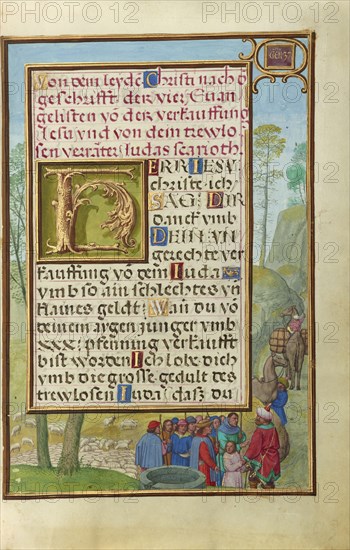 GEN 37
Von dem leyde Christi nach d
geschrifft der vier Euan
gelisten vo der verkauffung
Jesu vnd von dem trewlo
sen verräter Iudas scarioth.
HERR IESV
christe ich
SAG DIR
danck vmb
DEIN VN
geuerte ver
kauffung vo dem Iuda
vmb so ain schlechtes vn
klaines geldt Wan du vo
deinem aygen junger vmb
XXX pfenning verkaufft
bist worden Ich lobe dich
vmb die grosse gedult des
trewlosen Iuda dasz du